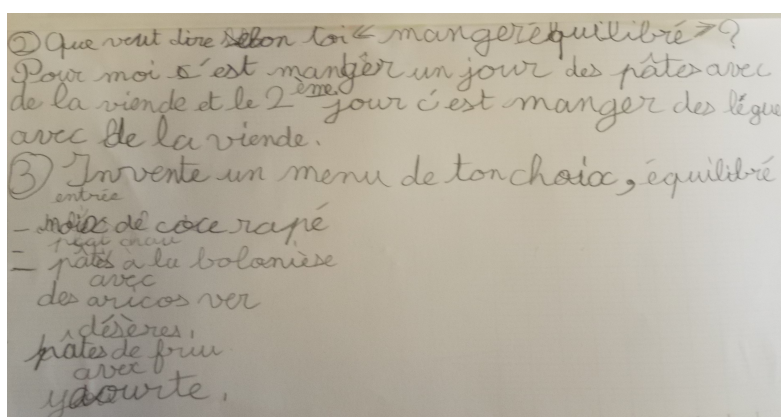 ② Que veut dire selon toi « manger équilibré » ?
Pour moi s'est manger un jour des pâtes avec
de la viende et le 2ème jour c'est manger des légue
avec de la viende.
③ Invente un menu de ton choix, équilibré
entrée
- noix de coce rapé
chau
= pâtes à la bolonièse
avec
des aricos ver
désères,
pâtes de fruu
avec
yaourte.